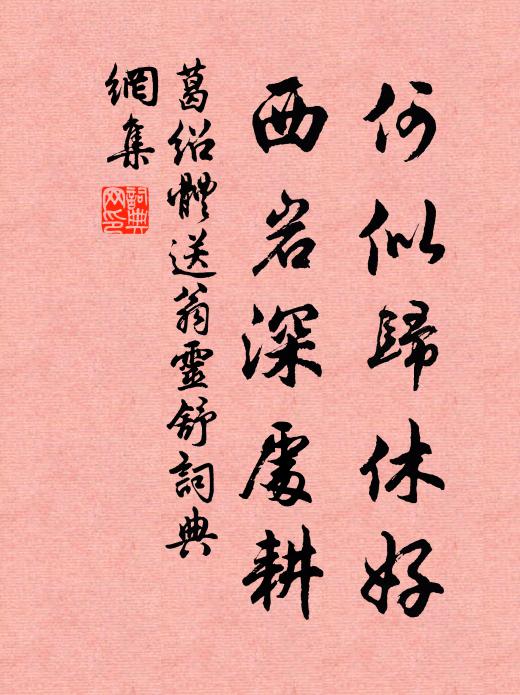 何似歸休好
西岩深處耕
葛紹體送翁靈舒詞典
網集
詞典
网印